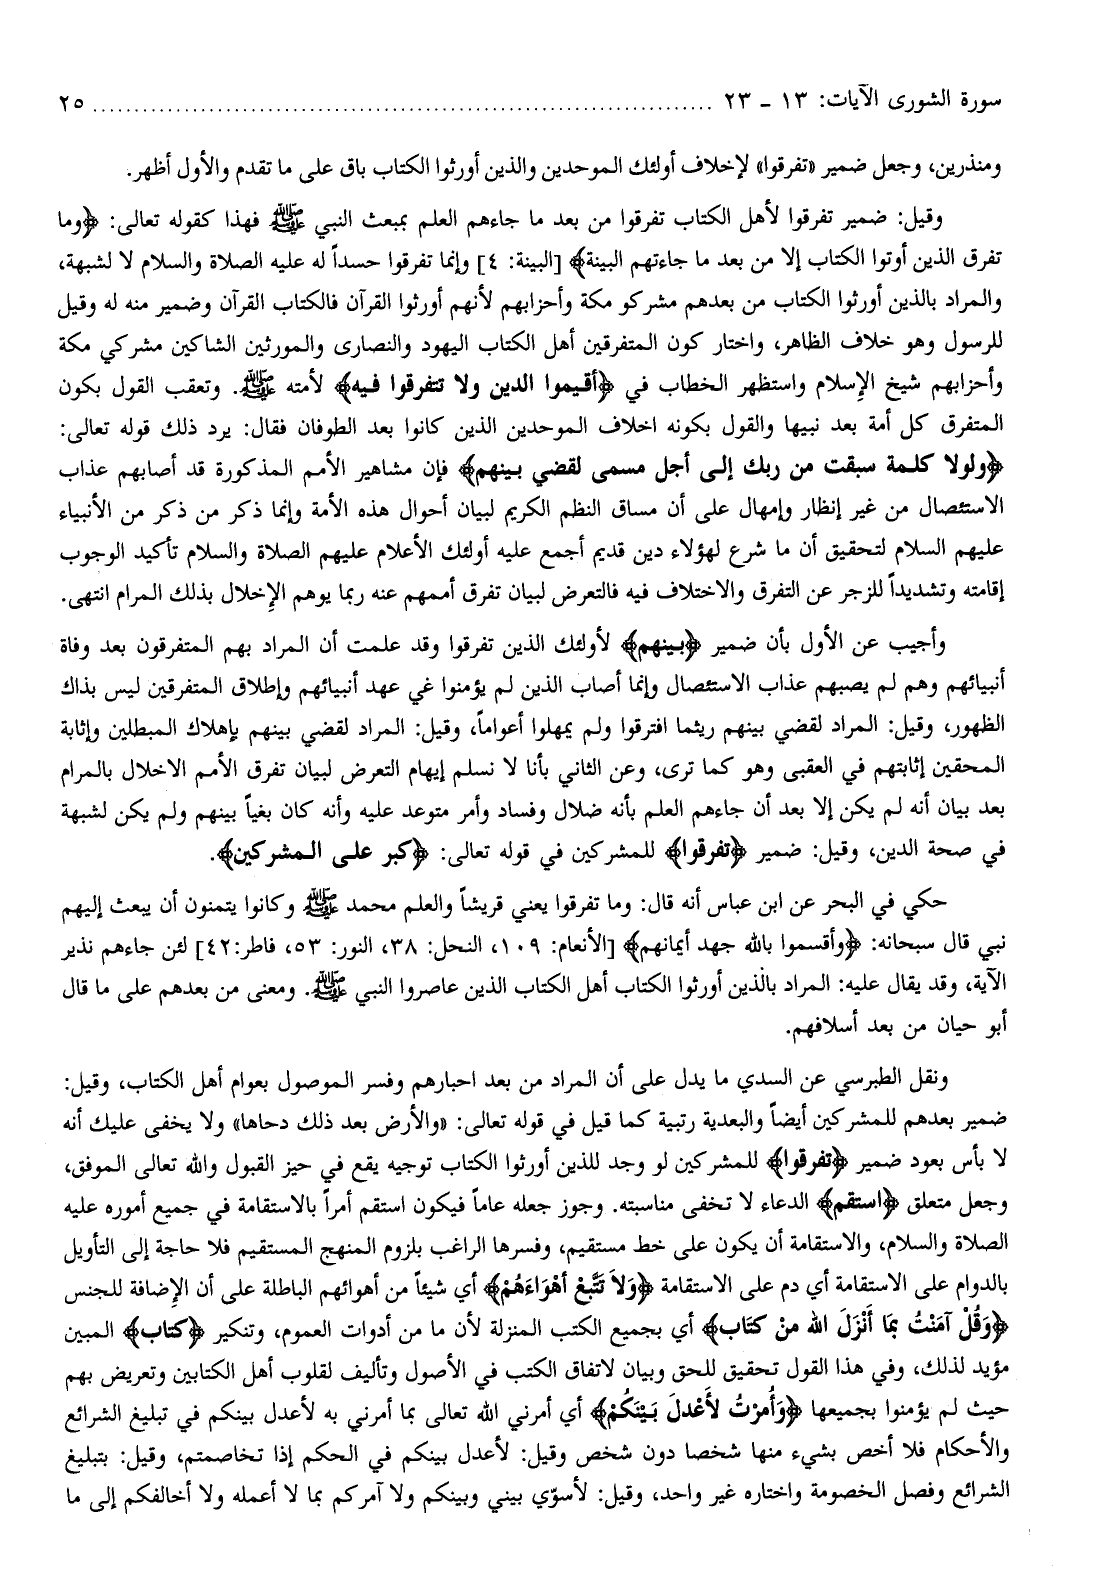 سورة الشورى الآيات: ١٣ ـ ٢٣ ........................................................................... ٢٥
ومنذرين، وجعل ضمير «تفرقوا» لإخلاف أولئك الموحدين والذين أورثوا الكتاب باق على ما تقدم والأول أظهر.
وقيل: ضمير تفرقوا لأهل الكتاب تفرقوا من بعد ما جاءهم العلم بمبعث النبي ﷺ فهذا كقوله تعالى: ﴿وما
تفرق الذين أوتوا الكتاب إلا من بعد ما جاءتهم البينة﴾ [البينة: ٤] وإنما تفرقوا حسداً له عليه الصلاة والسلام لا لشبهة،
والمراد بالذين أورثوا الكتاب من بعدهم مشركو مكة وأحزابهم لأنهم أورثوا القرآن فالكتاب القرآن وضمير منه له وقيل
للرسول وهو خلاف الظاهر، واختار كون المتفرقين أهل الكتاب اليهود والنصارى والمورثين الشاكين مشركي مكة
وأحزابهم شيخ الإِسلام واستظهر الخطاب في ﴿أقيموا الدين ولا تتفرقوا فيه﴾ لأمته ﷺ. وتعقب القول بكون
المتفرق كل أمة بعد نبيها والقول بكونه اخلاف الموحدين الذين كانوا بعد الطوفان فقال: يرد ذلك قوله تعالى:
﴿ولولا كلمة سبقت من ربك إلى أجل مسمى لقضي بينهم﴾ فإن مشاهير الأمم المذكورة قد أصابهم عذاب
الاستئصال من غير إنظار وإمهال على أن مساق النظم الكريم لبيان أحوال هذه الأمة وإنما ذكر من ذكر من الأنبياء
عليهم السلام لتحقيق أن ما شرع لهؤلاء دين قديم أجمع عليه أولئك الأعلام عليهم الصلاة والسلام تأكيد الوجوب
إقامته وتشديداً للزجر عن التفرق والاختلاف فيه فالتعرض لبيان تفرق أممهم عنه ربما يوهم الإِخلال بذلك المرام انتهى.
وأجيب عن الأول بأن ضمير ﴿بينهم﴾ لأولئك الذين تفرقوا وقد علمت أن المراد بهم المتفرقون بعد وفاة
أنبيائهم وهم لم يصبهم عذاب الاستئصال وإنما أصاب الذين لم يؤمنوا غي عهد أنبيائهم وإطلاق المتفرقين ليس بذاك
الظهور، وقيل: المراد لقضي بينهم ريثما افترقوا ولم يمهلوا أعواماً، وقيل: المراد لقضي بينهم بإهلاك المبطلين وإثابة
المحقين إثابتهم في العقبى وهو كما ترى، وعن الثاني بأنا لا نسلم إيهام التعرض لبيان تفرق الأمم الاخلال بالمرام
بعد بيان أنه لم يكن إلا بعد أن جاءهم العلم بأنه ضلال وفساد وأمر متوعد عليه وأنه كان بغياً بينهم ولم يكن لشبهة
في صحة الدين، وقيل: ضمير ﴿تفرقوا﴾ للمشركين في قوله تعالى: ﴿كبر على المشركين﴾.
حكي في البحر عن ابن عباس أنه قال: وما تفرقوا يعني قريشاً والعلم محمد ﷺ وكانوا يتمنون أن يبعث إليهم
نبي قال سبحانه: ﴿وأقسموا بالله جهد أيمانهم﴾ [الأنعام: ١٠٩، النحل: ٣٨، النور: ٥٣، فاطر:٤٢] لئن جاءهم نذير
الآية، وقد يقال عليه: المراد بالذين أورثوا الكتاب أهل الكتاب الذين عاصروا النبي ﷺ. ومعنى من بعدهم على ما قال
أبو حيان من بعد أسلافهم.
ونقل الطبرسي عن السدي ما يدل على أن المراد من بعد احبارهم وفسر الموصول بعوام أهل الكتاب، وقيل:
ضمير بعدهم للمشركين أيضاً والبعدية رتبية كما قيل في قوله تعالى: «والأرض بعد ذلك دحاها» ولا يخفى عليك أنه
لا بأس بعود ضمير ﴿تفرقوا﴾ للمشركين لو وجد للذين أورثوا الكتاب توجيه يقع في حيز القبول والله تعالى الموفق،
وجعل متعلق ﴿استقم﴾ الدعاء لا تخفى مناسبته. وجوز جعله عاماً فيكون استقم أمراً بالاستقامة في جميع أموره عليه
الصلاة والسلام، والاستقامة أن يكون على خط مستقيم، وفسرها الراغب بلزوم المنهج المستقيم فلا حاجة إلى التأويل
بالدوام على الاستقامة أي دم على الاستقامة ﴿وَلاَ تَتَّبِعْ أَهْوَاءَهُمْ﴾ أي شيئاً من أهوائهم الباطلة على أن الإِضافة للجنس
﴿وَقُلْ آمَنْتُ بِمَا أَنْزَلَ الله مِنْ كتَاب﴾ أي بجميع الكتب المنزلة لأن ما من أدوات العموم، وتنكير ﴿كتاب﴾ المبين
مؤيد لذلك، وفي هذا القول تحقيق للحق وبيان لاتفاق الكتب في الأصول وتأليف لقلوب أهل الكتابين وتعريض بهم
حيث لم يؤمنوا بجميعها ﴿وَأُمِرْتُ لأَعْدلَ بَيْنَكُمْ﴾ أي أمرني الله تعالى بما أمرني به لأعدل بينكم في تبليغ الشرائع
والأحكام فلا أخص بشيء منها شخصا دون شخص وقيل: لأعدل بينكم في الحكم إذا تخاصمتم، وقيل: بتبليغ
الشرائع وفصل الخصومة واختاره غير واحد، وقيل: لأسوّي بيني وبينكم ولا آمركم بما لا أعمله ولا أخالفكم إلى ما